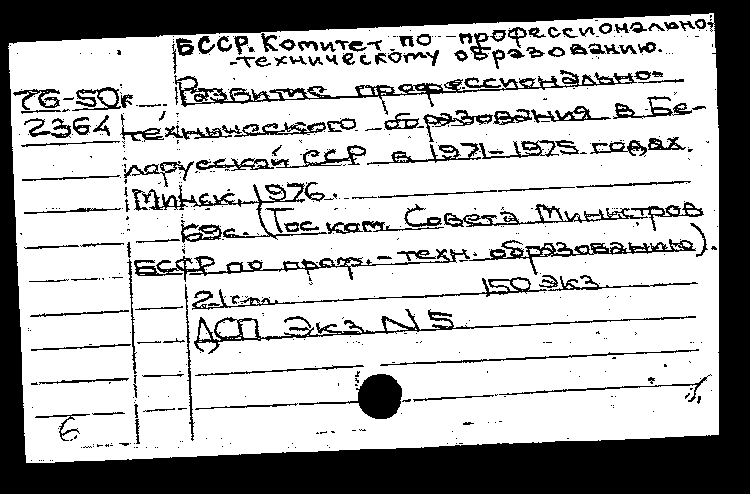 БССР. Комитет по профессионально-
-техническому образованию.
76-50к Развитие профессионально-
2364 технического образования в Бе-
лорусской ССР в 1971-1975 годах.
Минск, 1976.
69с. (Гос ком. Совета Министров
БССР по проф.-техн. образованию).
21см. 150 экз.
ДСП Экз N 5
6